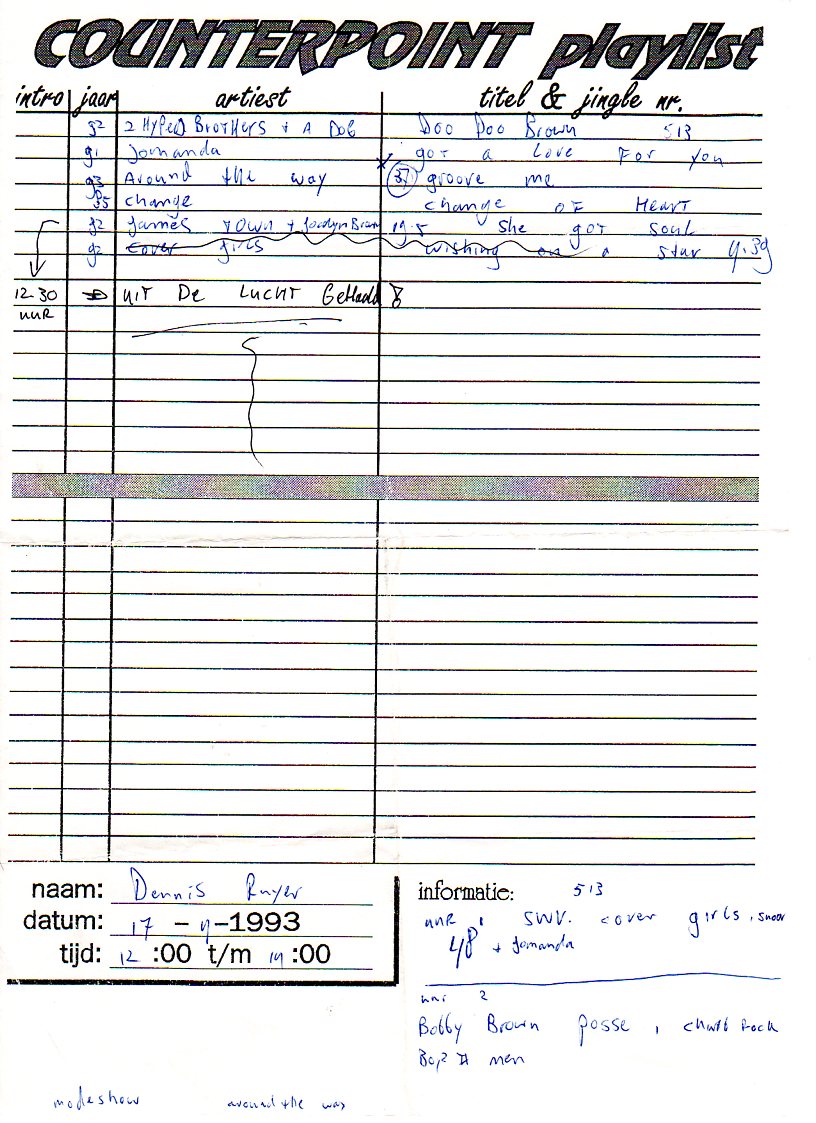 COUNTERPOINT playlist
intro jaar artiest titel & jingle nr.
92 2 Hyped Brothers + A Dog Doo Doo Brown 513
91 Jomanda got a Love For you
93 Around the way 37 groove me
85 change change OF HEART
92 James Town + Jocelyn Brown she got soul
92 cover girls wishing on a star 4.39
12.30 UIT De LUCHT GeHaald
UUR
naam: Dennis Ruyer
datum: 17 - 4 -1993
tijd: 12 :00 t/m 14 :00
informatie: 513
uur 1 SWV. cover girls, snoor
48 + Jomanda
uur 2
Bobby Brown posse, chubb Rock
Boyz II men
modeshow around the way